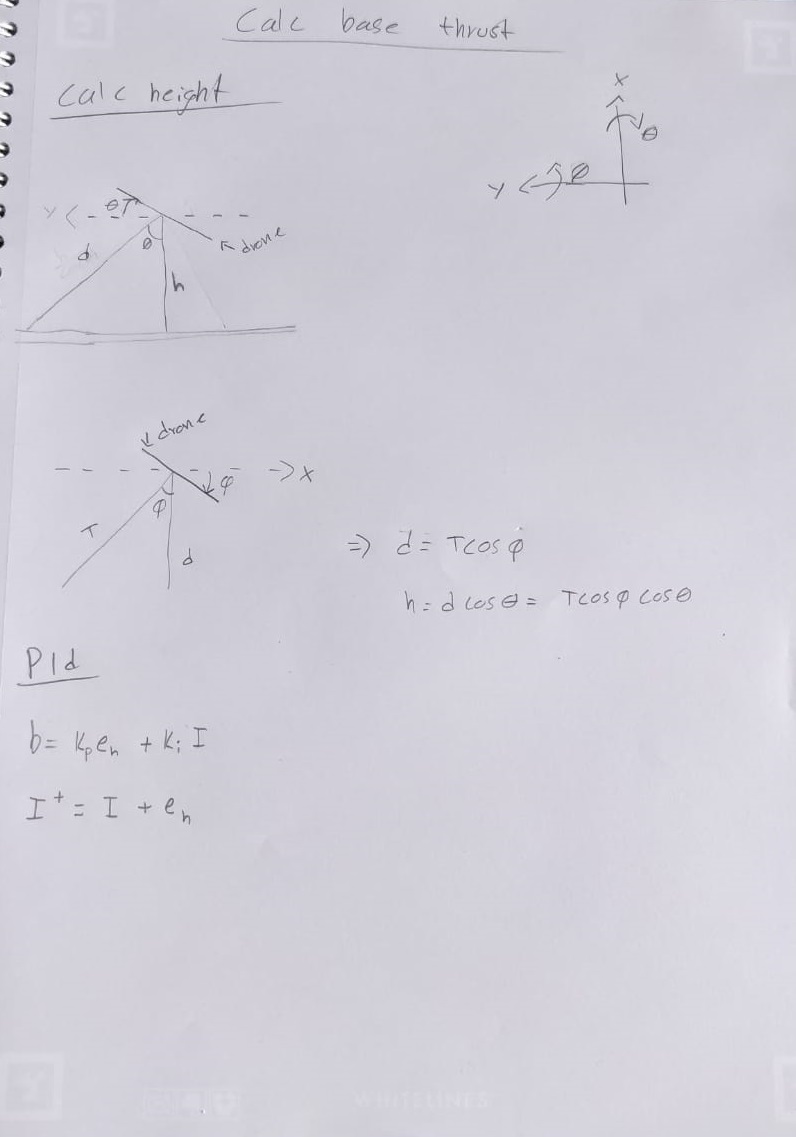 Calc base thrust
Calc height
X
θ
Y
φ
Y
θ
drone
d
θ
h
drone
X
φ
φ
T
d
⇒ d = Tcos φ
h = d cos θ = Tcos φ cos θ
PId
b = Kp en + Ki I
I⁺ = I + eh
WHITELINES